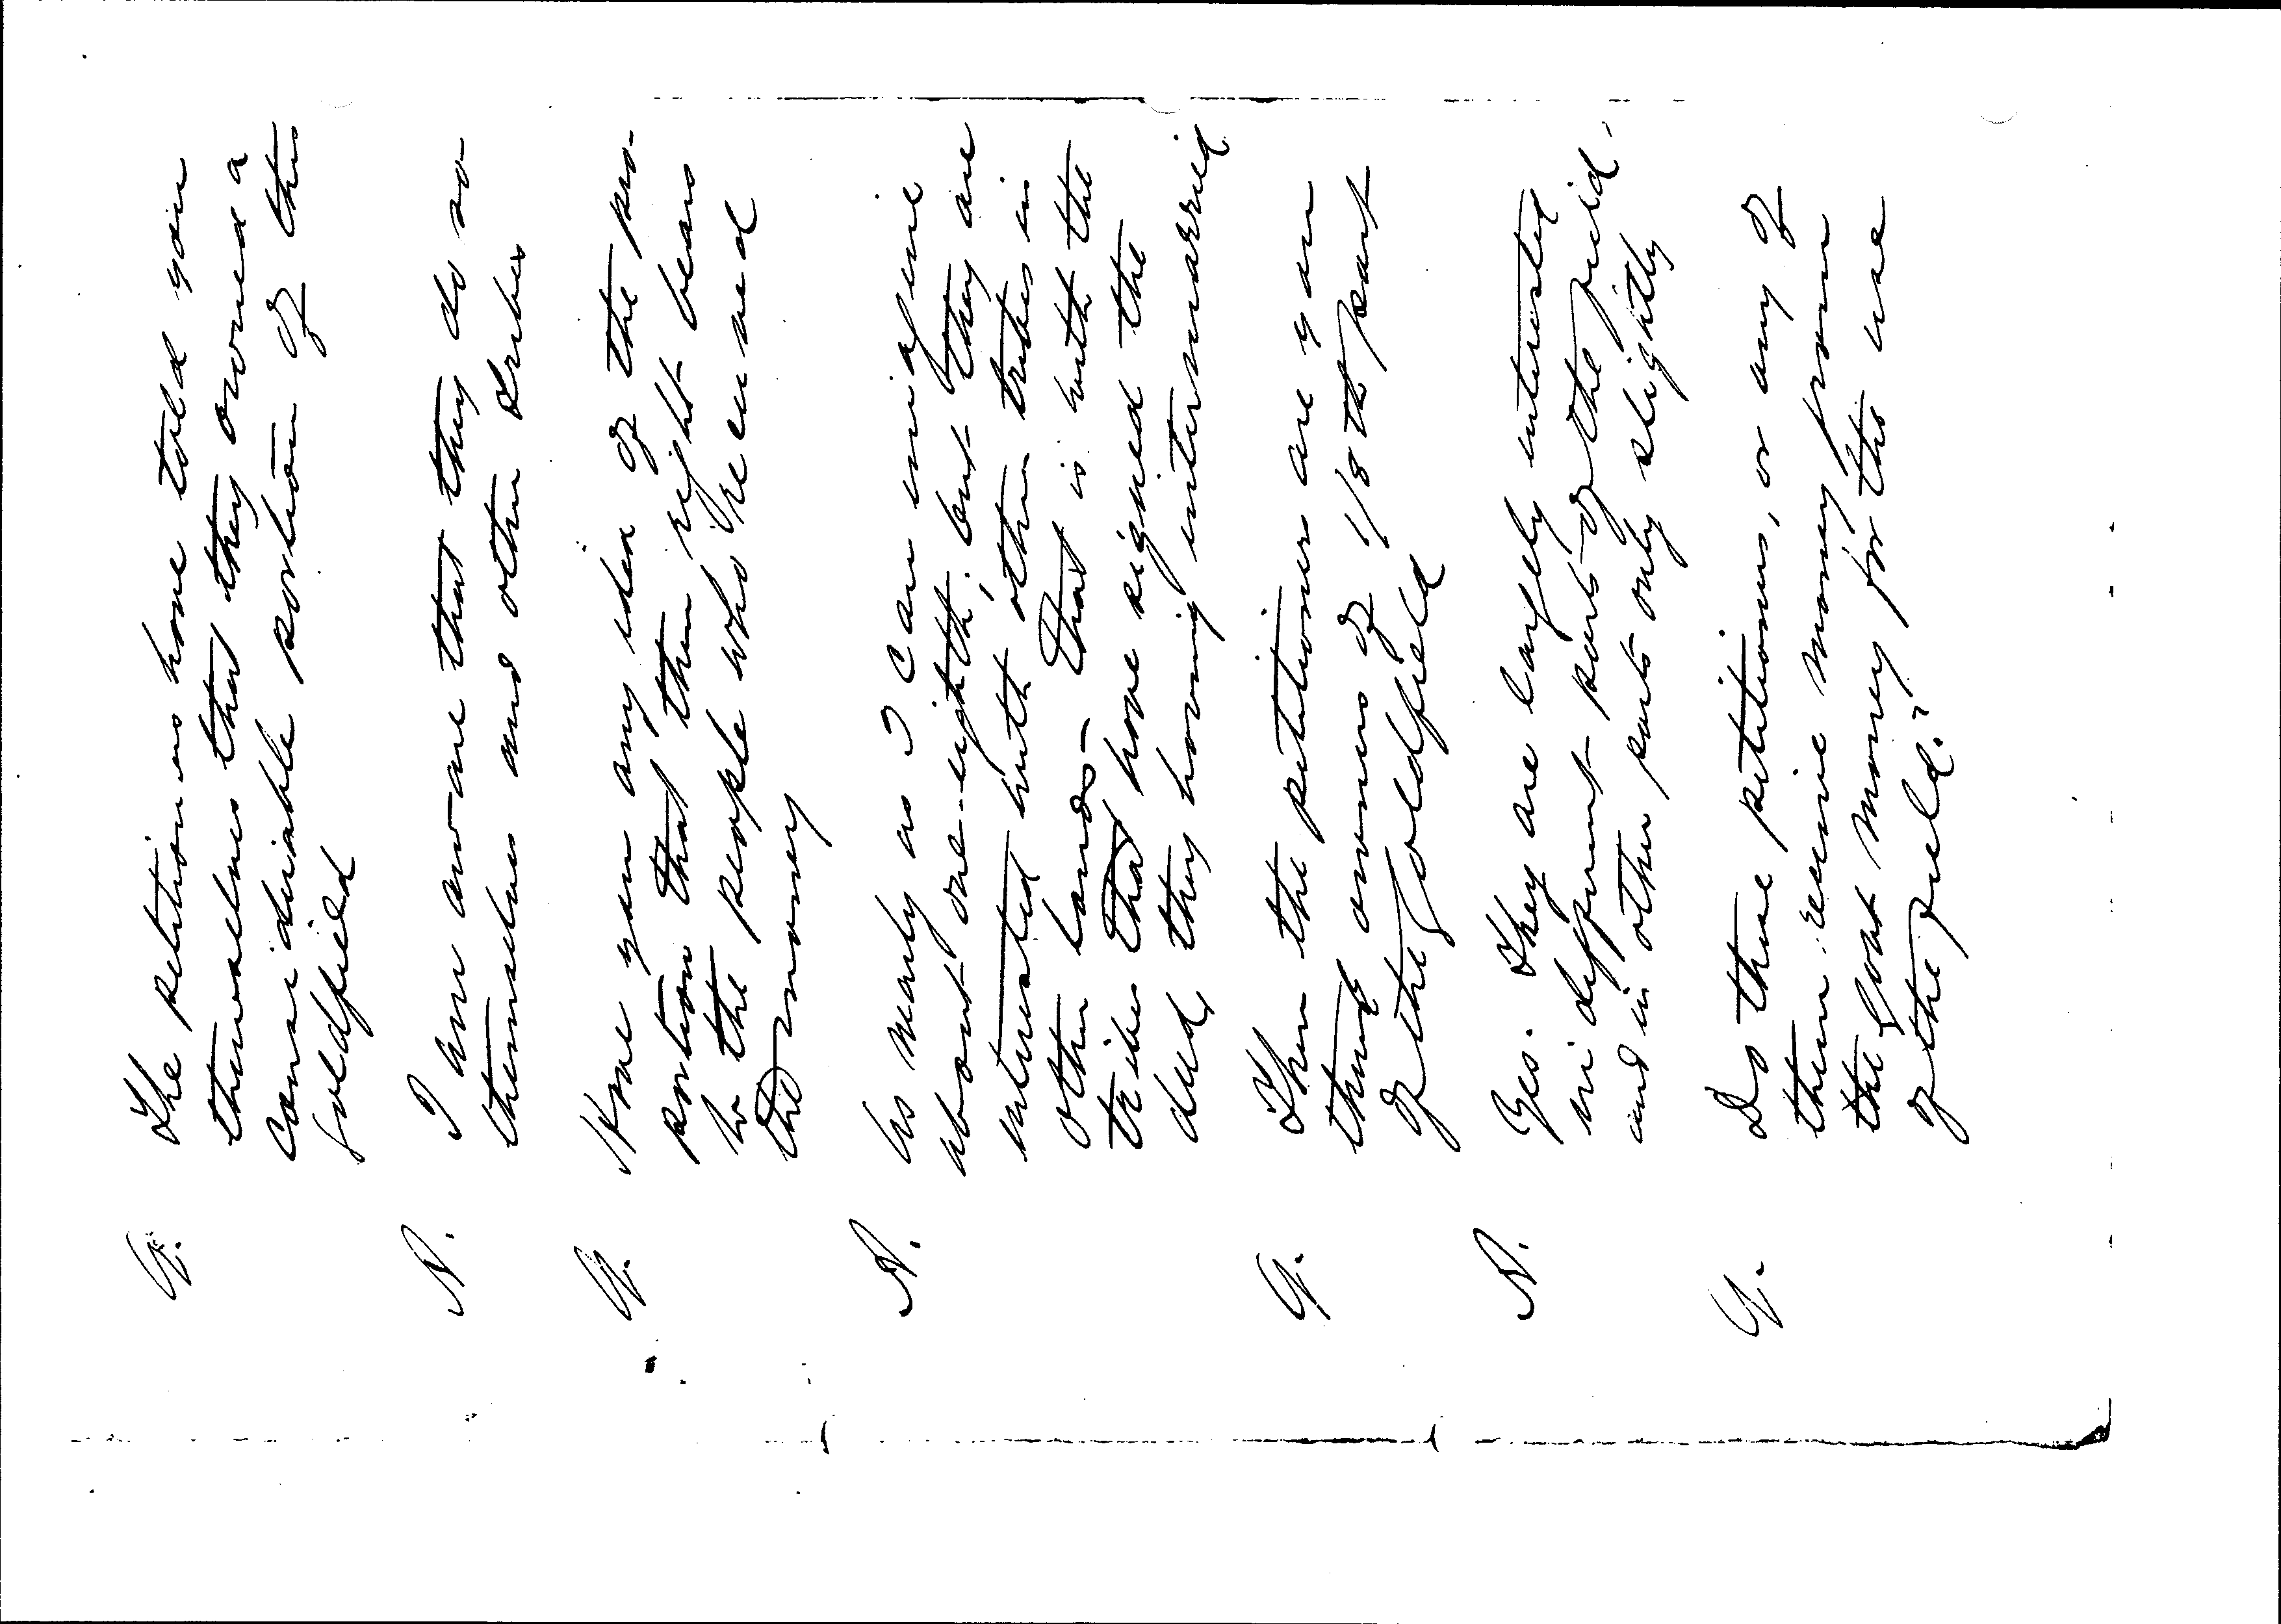 Q. The petitioners have told you
themselves that they owned a
considerable portion of the
goldfield
A. I am aware that they do so
themselves and other tribes
Q. Have you any idea of the pro-
portion that their right bears
to the people who received
the money
A. As nearly as I can imagine
about one-eighth; but they are
interested with other tribes in
other lands - that is with the
tribes that have signed the
deed, they having intermarried
Q. Then the petitioners are you
think owners of 1/8th part
of the goldfield
A. Yes. They are largely interested
in different parts of the field,
and in other parts only slightly
Q. Do these petitioners, or any of
them receive money from
the Govt money for the use
of the field?